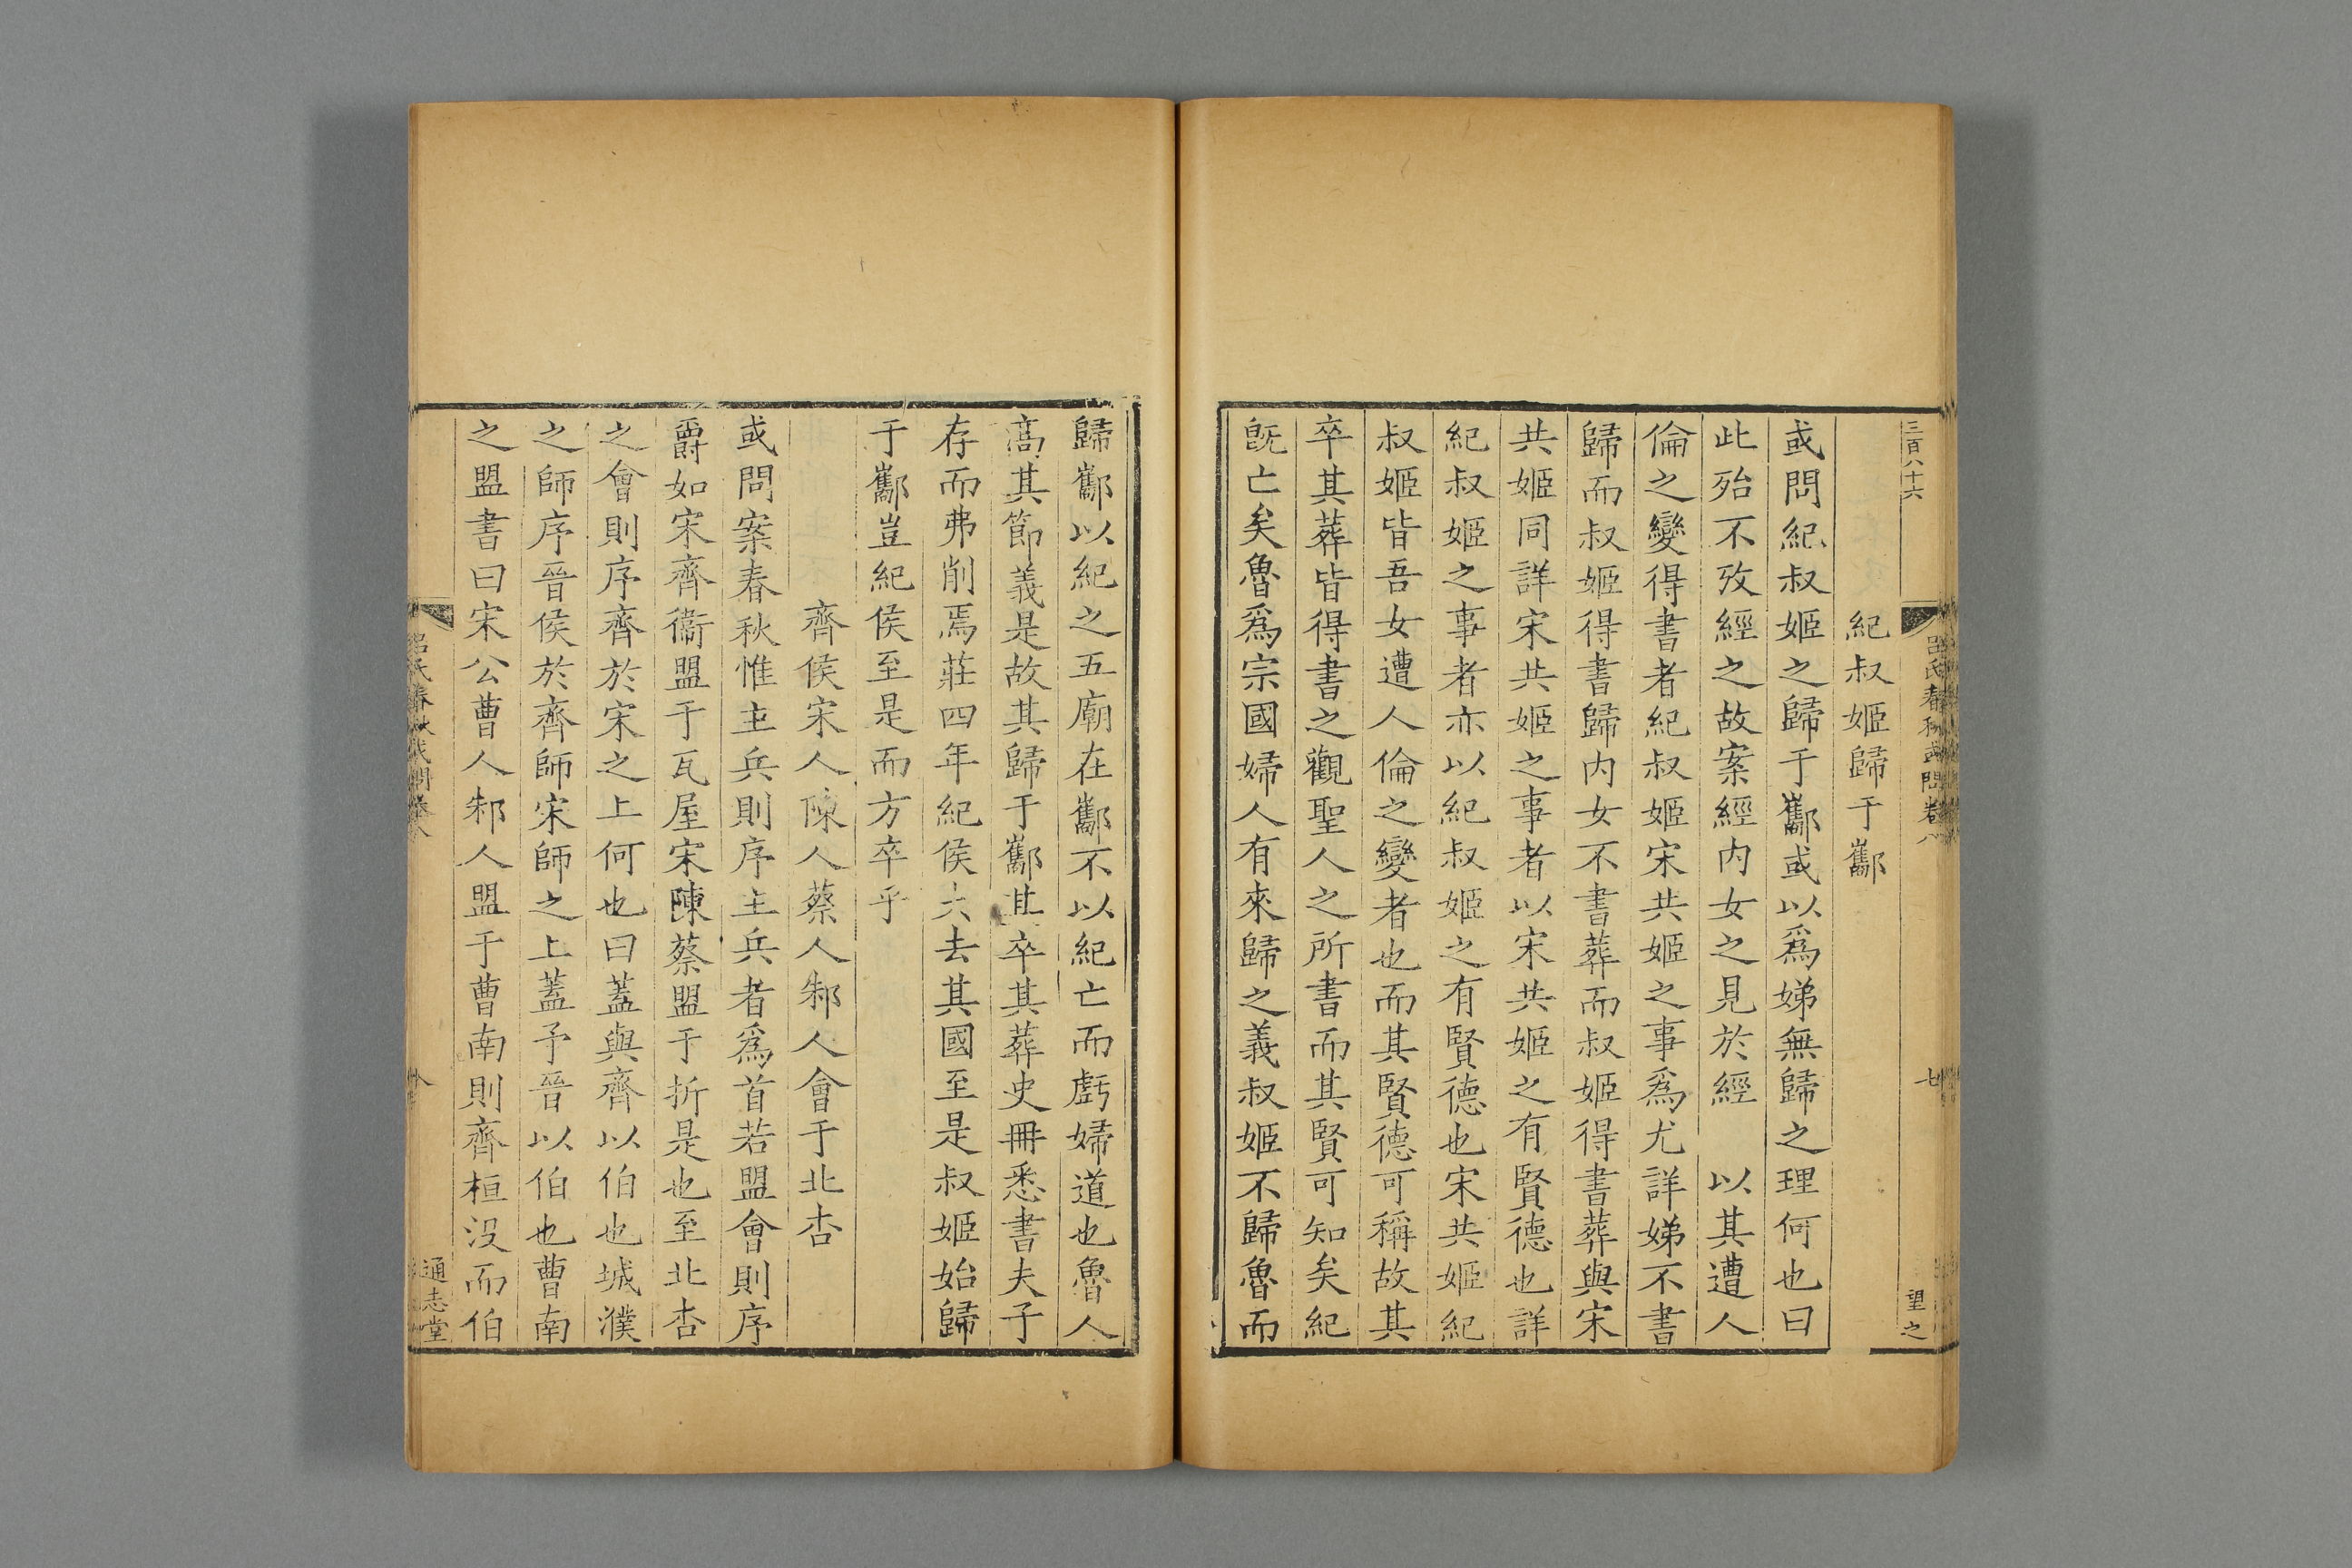 三百八十六
呂氏春秋或問卷八
七
望之
紀叔姬歸于酅
或問紀叔姬之歸于酅或以爲娣無歸之理何也曰
此殆不攷經之故案經内女之見於經 以其遭人
倫之變得書者紀叔姬宋共姬之事爲尤詳娣不書
歸而叔姬得書歸内女不書葬而叔姬得書葬與宋
共姬同詳宋共姬之事者以宋共姬之有賢德也詳
紀叔姬之事者亦以紀叔姬之有賢德也宋共姬紀
叔姬皆吾女遭人倫之變者也而其賢德可稱故其
卒其葬皆得書之觀聖人之所書而其賢可知矣紀
旣亡矣魯爲宗國婦人有來歸之義叔姬不歸魯而
歸酅以紀之五廟在酅不以紀亡而虧婦道也魯人
高其節義是故其歸于酅其卒其葬史冊悉書夫子
存而弗削焉莊四年紀侯大去其國至是叔姬始歸
于酅豈紀侯至是而方卒乎
齊侯宋人陳人蔡人邾人會于北杏
或問案春秋惟主兵則序主兵者爲首若盟會則序
爵如宋齊衞盟于瓦屋宋陳蔡盟于折是也至北杏
之會則序齊於宋之上何也曰蓋與齊以伯也城濮
之師序晉侯於齊師宋師之上蓋予晉以伯也曹南
之盟書曰宋公曹人邾人盟于曹南則齊桓没而伯
呂氏春秋或問卷八
通志堂